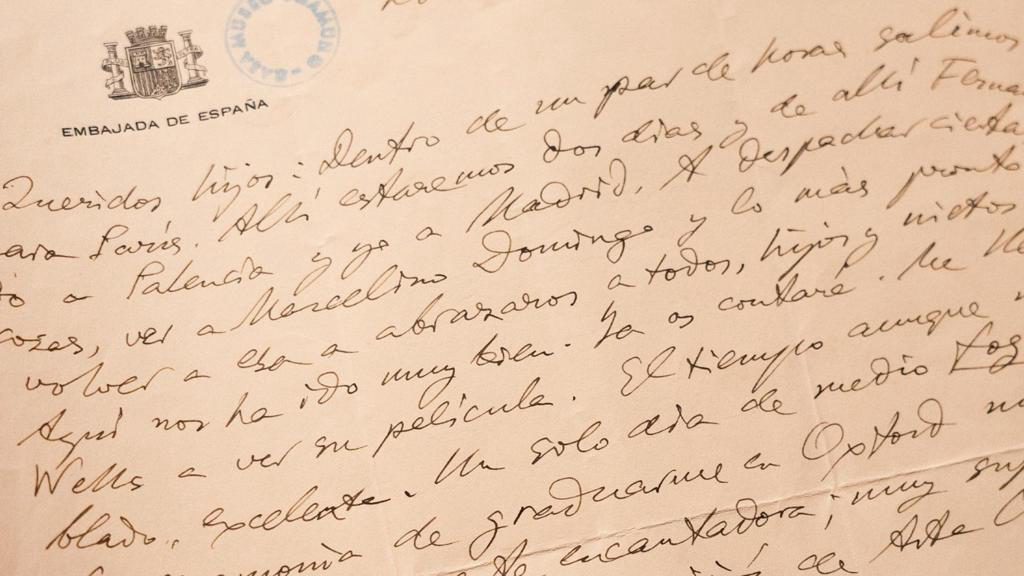 CASA MUSEO UNAMUNO
EMBAJADA DE ESPAÑA
Queridos hijos: Dentro de un par de horas salimos
para París. Allí estaremos dos dias y de allí
a Palencia y yo a Madrid. A despachar
cosas, ver a Marcelino Domingo y lo más pronto
volver a esa a abrazaros a todos, hijos y nietos
Aquí nos ha ido muy bien. Ya os contaré. Me
Wells a ver su película. El tiempo aunque
blado, excelente. Un solo dia de medio
de graduarme en Oxford
encantadora; muy
de Arte